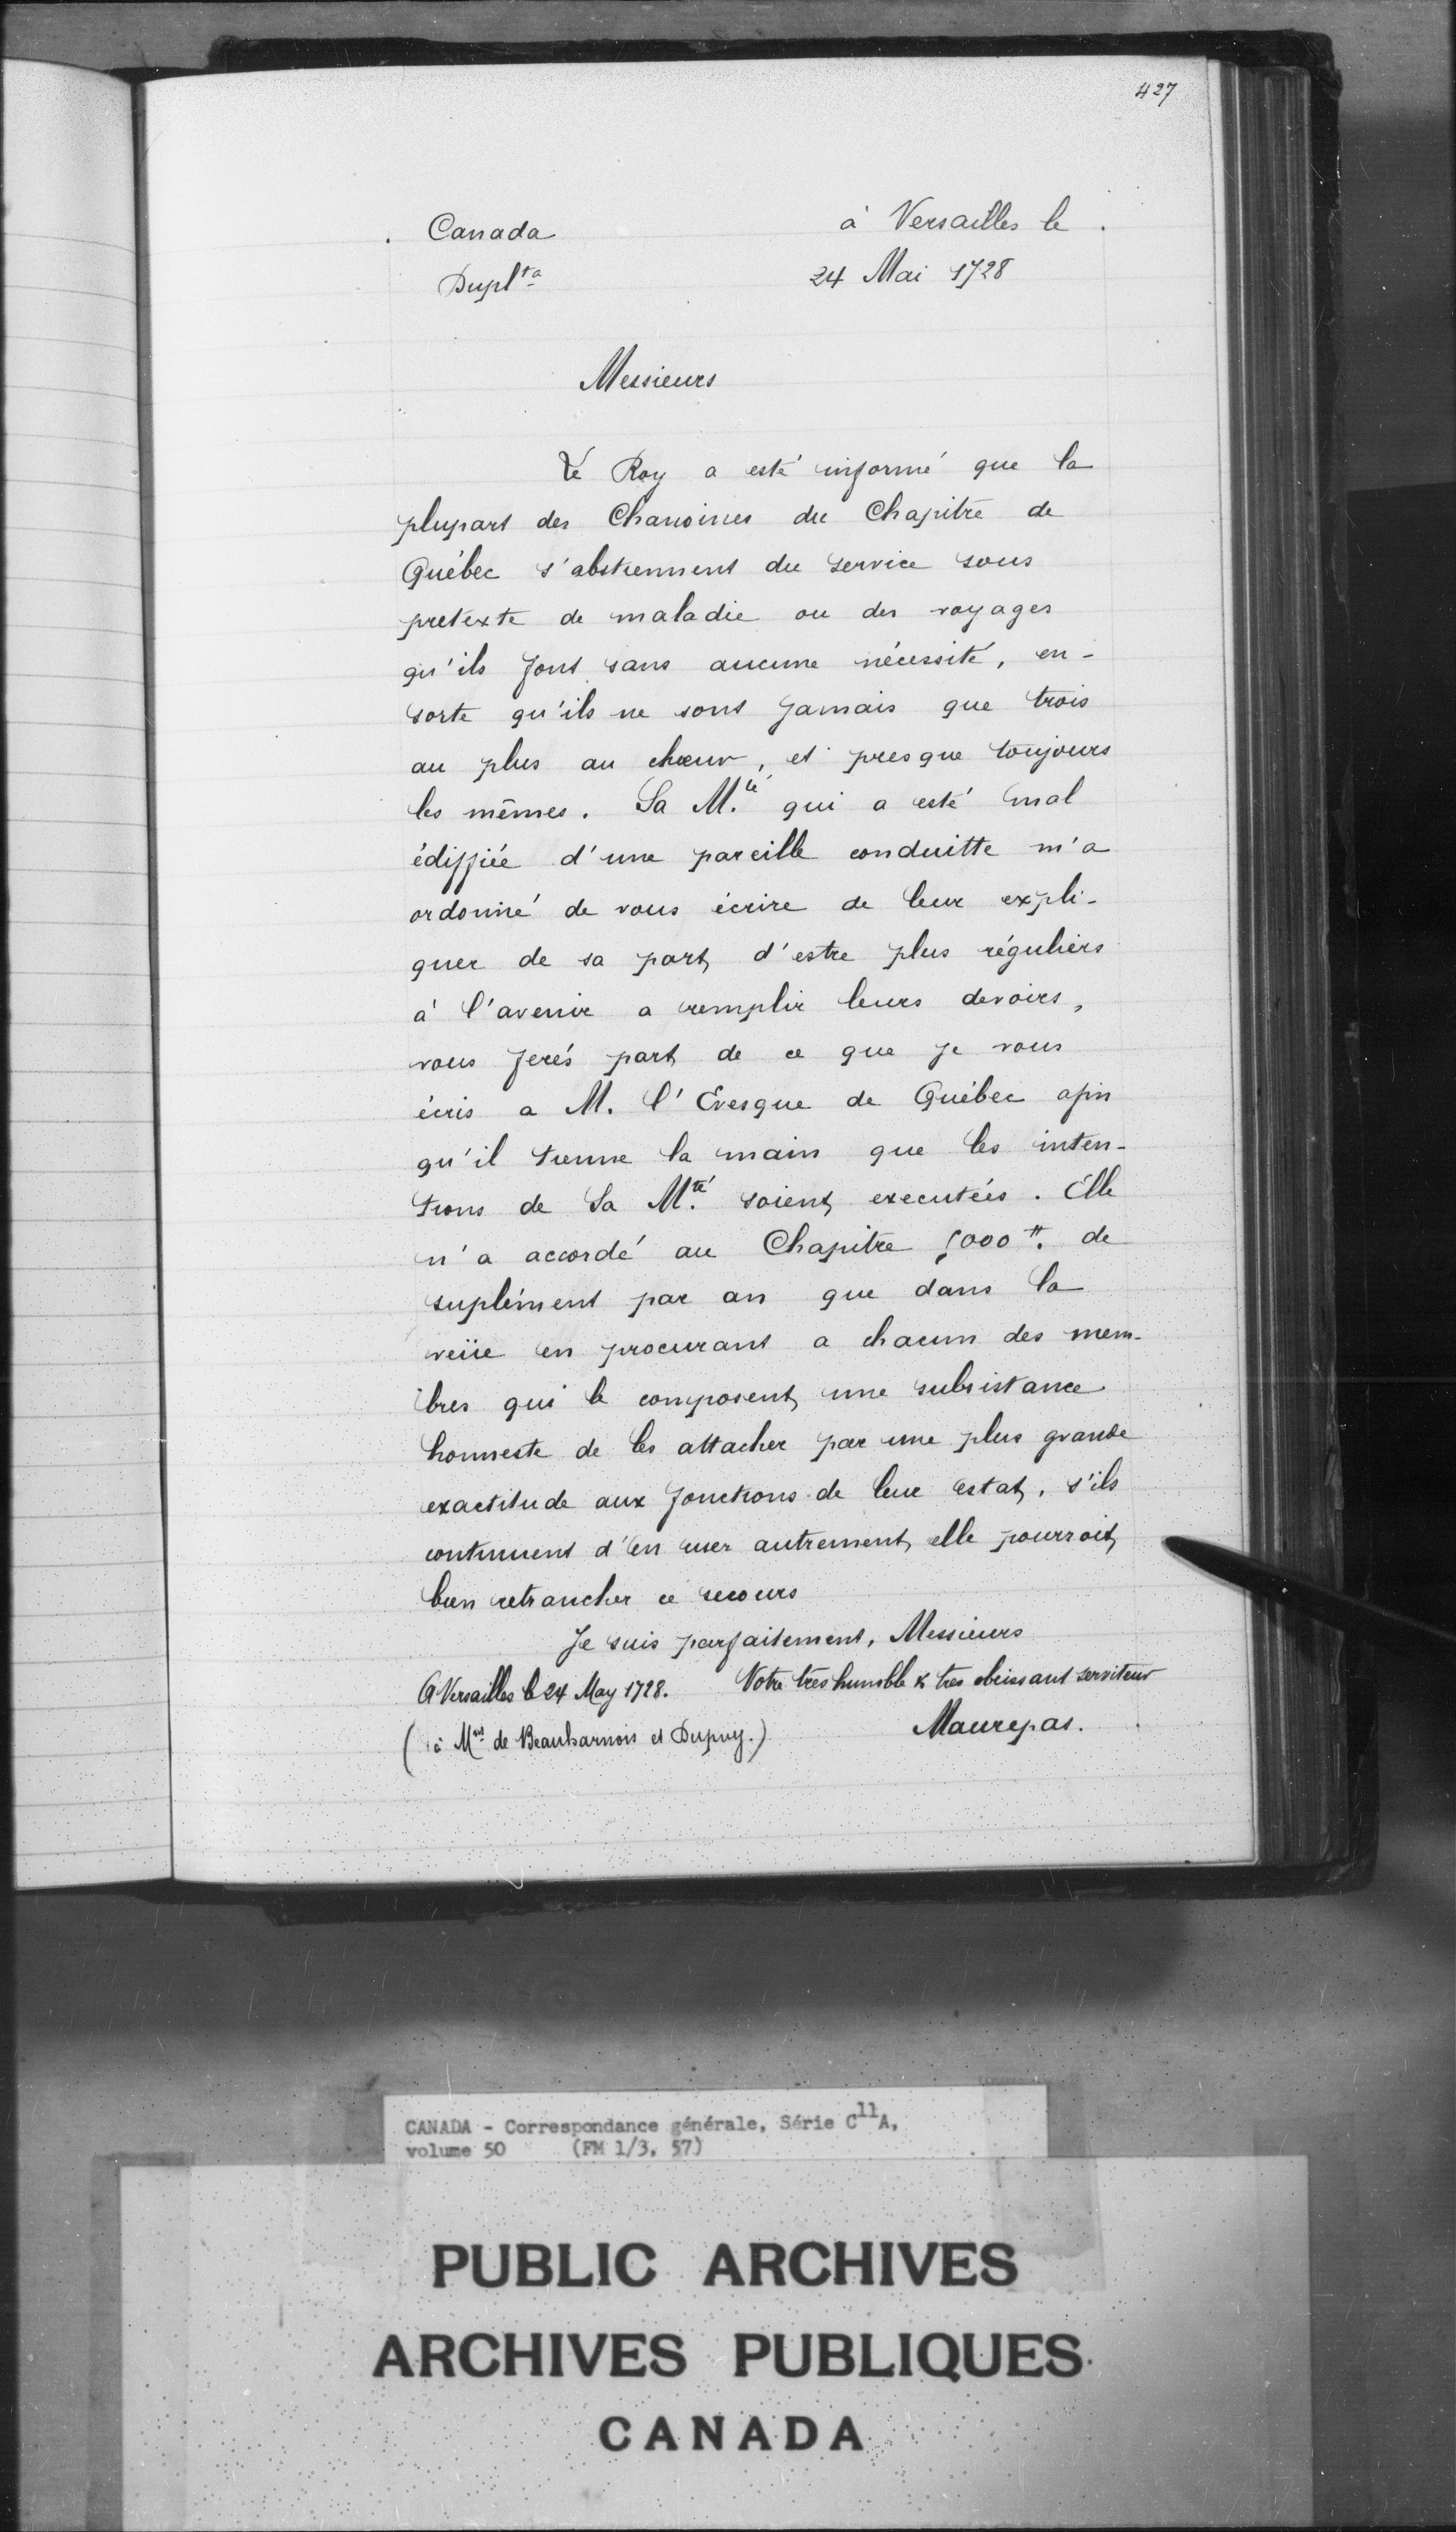 427
Canada
à Versailles le
Duplta
24 Mai 1728
Messieurs
Le Roy a esté informé que la
plupart des Chanoines du Chapitre de
Québec s'abstiennent du service sous
pretexte de maladie ou des voyages
qu'ils font sans aucune nécessité, en-
sorte qu'ils ne sont jamais que trois
au plus au chœur, et presque toujours
les mêmes. Sa M.té qui a esté mal
édiffiée d'une pareille conduitte m'a
ordonné de vous écrire de leur expli-
quer de sa part, d'estre plus réguliers
à l'avenir a remplir leurs devoirs,
vous ferés part de ce que je vous
écris a M. l'Evesque de Québec afin
qu'il tienne la main que les inten-
tions de Sa M.té soient executées. Elle
n'a accordé au Chapitre 5000 ₶. de
suplément par an que dans la
veüe en procurant a chacun des mem-
bres qui le composent, une subsistance
honneste de les attacher par une plus grande
exactitude aux fonctions de leur estat, s'ils
continuent d'en user autrement, elle pourroit,
bien retrancher ce secours
Je suis parfaitement, Messieurs
A Versailles le 24 May 1728. Votre très humble & tres obeissant serviteur
(à Mrs de Beauharnois et Dupuy.) Maurepas.
CANADA - Correspondance générale, Série C11A,
volume 50 (FM 1/3, 57)
PUBLIC ARCHIVES
ARCHIVES PUBLIQUES
CANADA